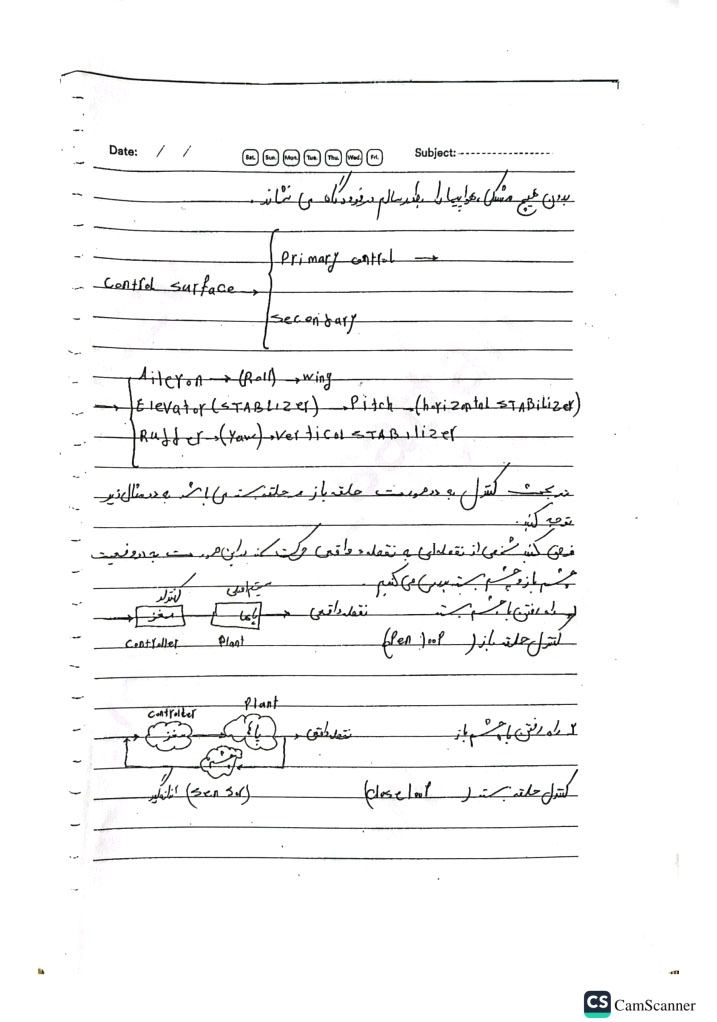 Date: / /
Sat. Sun. Mon. Tue. Thu. Wed. Fri.
Subject:
بدون هیچ مشکل هواپیما را بطور سالم در فرودگاه می نشاند.
Primary control →
Control surface →
Secondary
Aileron → (Roll) → wing
→ Elevator (STABLIZER) → Pitch → (horizontal STABilizer)
Rudder → (Yaw) → vertical STABilizer
در بحث کنترل به دو صورت حلقه باز و حلقه بسته می باشد به دو مثال زیر
توجه کنید.
فرض کنید شخصی از نقطه‌ای به نقطه دو واقعی حرکت کند در این صورت به دو وضعیت
چشم باز و چشم بسته بررسی می کنیم.
راه رفتن با چشم بسته
کنترلر سیستم اصلی
→ مغز پاها → نقطه واقعی
Controller Plant
کنترل حلقه باز (open loop)
۲ راه رفتن با چشم باز
Controller Plant
→ مغز → پاها → نقطه واقعی
چشم
(sensor) اندازه‌گیر
کنترل حلقه بسته (close loop)
CS CamScanner